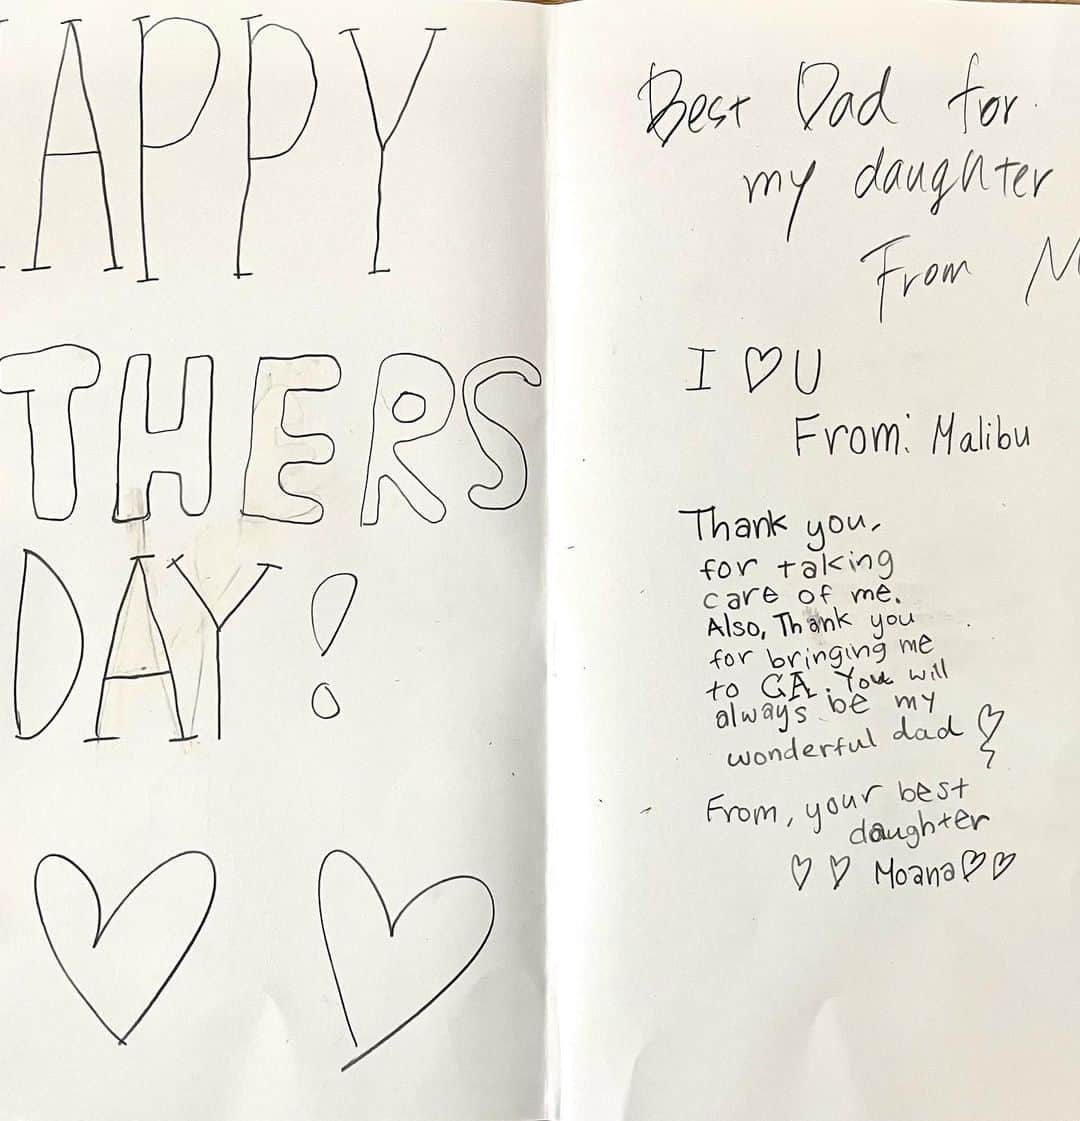 HAPPY
THERS
DAY!
Best Dad for
my daughter
From
I ♡ U
From: Malibu
Thank you,
for taking
care of me.
Also, Thank you
for bringing me
to GA. You will
always be my
wonderful dad ♡
From, your best
daughter
♡ ♡ Moana ♡ ♡